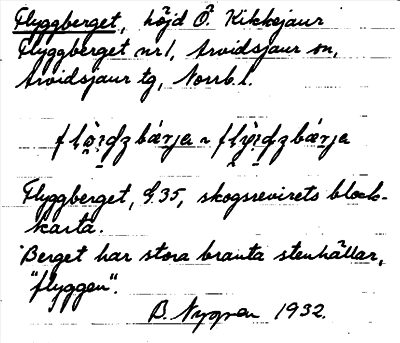 Flyggberget, höjd Ö. Kikkejaur
Flyggberget nr 1, Arvidsjaur sn,
Arvidsjaur tg, Norrb.l.
Flyggberget, G.35, skogsrevirets block-
karta.
Berget har stora branta stenhällar,
"flyggen".
B. Nygren 1932.